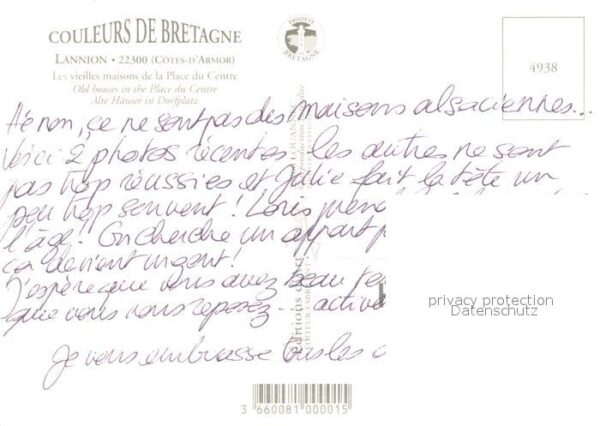 COULEURS DE BRETAGNE
LANNION • 22300 (CÔTES-D'ARMOR)
Les vieilles maisons de la Place du Centre
Old houses in the Place du Centre
Alte Häuser in Dorfplatz
PRODUIT EN BRETAGNE
4938
Hé non, ce ne sont pas des maisons alsaciennes...
Voici 2 photos récentes les autres ne sont
pas trop réussies et Julie fait la tête un
peu trop souvent! Loris
l'âge. On cherche un appart
ça devient urgent!
J'espère que vous avez beau
que vous vous reposez... active
Je vous embrasse tous les
privacy protection
Datenschutz
3 660081 000015